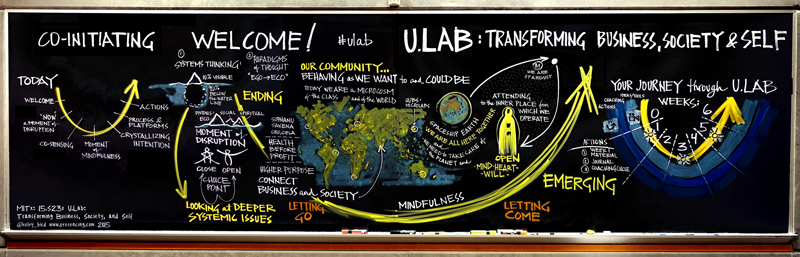 CO-INITIATING
WELCOME!
#ulab
U.LAB: TRANSFORMING BUSINESS, SOCIETY, & SELF
TODAY
WELCOME
NOW
A MOMENT of
DISRUPTION
CO-SENSING
MOMENT of
MINDFULNESS
CRYSTALLIZING
INTENTION
PROCESS &
PLATFORMS
ACTIONS
①
SYSTEMS THINKING
10% VISIBLE
90%
BELOW
the
WATER
LINE
②
PARADIGMS
of THOUGHT
"EGO→ECO"
ENDING
SOCIAL
SPIRITUAL
MOMENT of
DISRUPTION
CLOSE
OPEN
CHOICE
POINT
LOOKING at DEEPER
SYSTEMIC ISSUES
OUR COMMUNITY...
BEHAVING as WE WANT to and COULD BE
TODAY WE ARE A MICROCOSM
of THE CLASS and of the WORLD
HEALTH
BEFORE
PROFIT
HIGHER PURPOSE
CONNECT
BUSINESS and SOCIETY
LETTING
GO
HUBS
SPACESHIP EARTH
WE ARE ALL HERE TOGETHER
MINDFULNESS
ATTENDING
to the INNER PLACE from
WHICH WE
OPERATE
WE ARE
STARDUST
OPEN
"MIND-HEART-
WILL"
LETTING
COME
EMERGING
YOUR JOURNEY through U.LAB
WEEKS:
0
1
2
3
4
5
6
COACHING
CIRCLES
ACTIONS
① WEEKLY
MATERIAL
② JOURNAL
③ COACHING CIRCLE
MITx: 15.S23x U.Lab:
Transforming Business, Society, and Self
@kelvy_bird www.presencing.com 2015